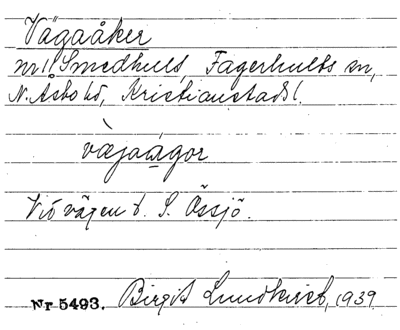 Vägaåker
nr 11 Smedhult, Fagerhults sn,
N. Åsbo hd, Kristianstads l.
vǽjaågor
Vid vägen t. S. Össjö.
Nr 5493. Birgit Lundkvist, 1939